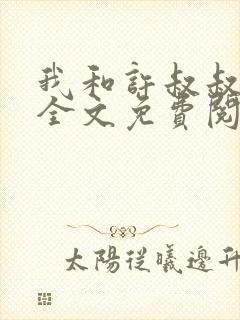 我和許叔叔
全文免費閱
太陽從曦邊升